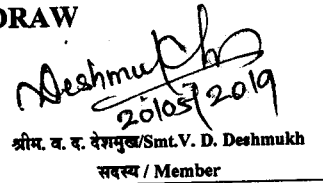 DRAW
Deshmukh
20/05/2019
श्रीम. व. द. देशमुख/Smt.V. D. Deshmukh
सदस्य / Member